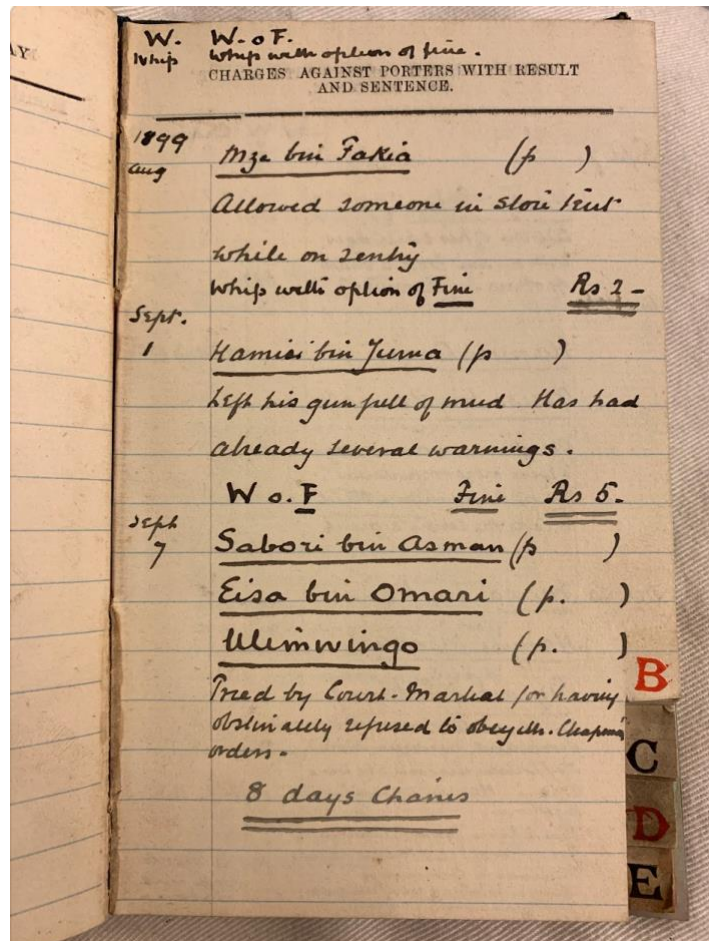 AY
W. W. of F.
Whip Whip with option of fine.
CHARGES AGAINST PORTERS WITH RESULT
AND SENTENCE.
1899
Aug Mze bin Fakia (p )
Allowed someone in store tent
while on sentry
Whip with option of Fine Rs 2 -
Sept.
1 Hamisi bin Juma (p )
Left his gun full of mud. Has had
already several warnings.
W o. F Fine Rs 5.
Sept
7 Sabori bin Asman (p )
Eisa bin Omari (p. )
Ulimwingo (p. )
Tried by Court-Martial for having
obstinately refused to obey Mr. Chapman's
orders.
8 days Chains
B
C
D
E